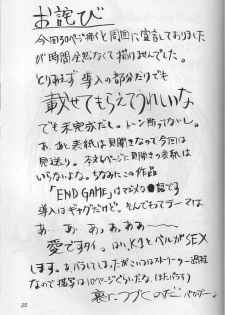 お詫び
今回30ページ描くと周囲に宣言しておりました
が時間全然なくて描けませんでした。
とりあえず導入の部分だけでも
載せてもらえてうれしいな
でも未完成だし。トーン貼ってないし。
あ、あと表紙は見開きなので今回は
見送り。本文1ページに見開きの表紙は
いらないだろ。ちなみにこの作品
「END GAME」はマジメな●話です
導入はギャグだけど。そんでもってテーマは
あ…あ…あっああ〜
愛ですタイ。はい、K'とパルがSEX
します。あ、バラしてしまったがこいつはストーリーの過程
なので描写は10ページぐらいだな。(またバラす)
裏につづくのだ
25